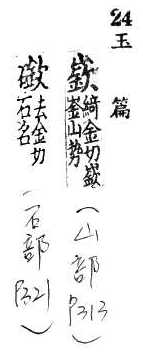 24
玉篇
嶔綺金切嶔
崟山勢
(山部 P313)
去金切
石名
(石部 P321)